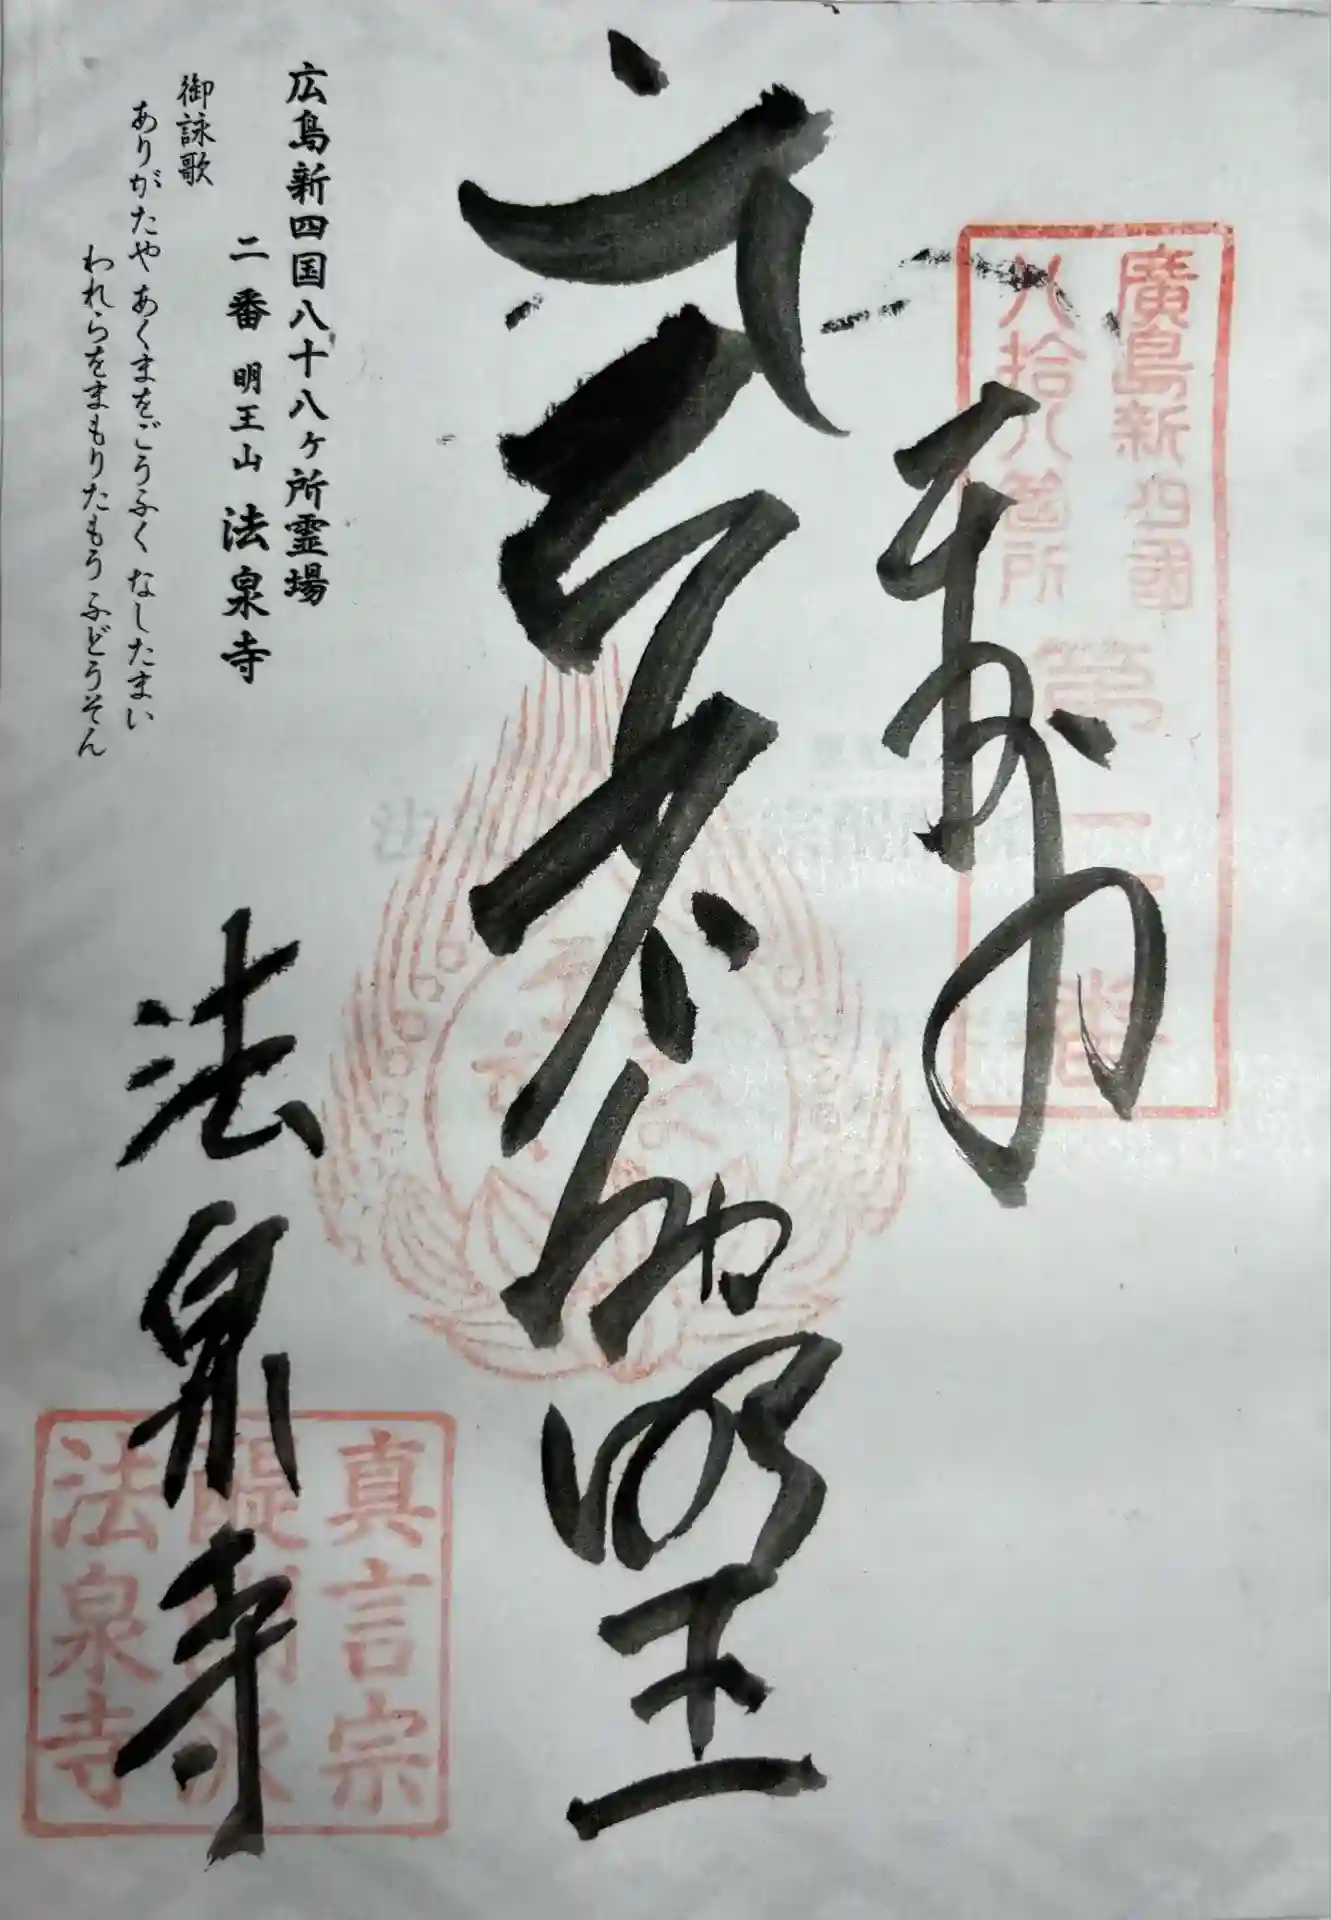 廣島新四國
八拾八箇所
第二番
不動明王
広島新四国八十八ヶ所霊場
二番 明王山 法泉寺
御詠歌
ありがたや あくまをごうふく なしたまい
われらをまもりたもう ふどうそん
法泉寺
真言宗
醍醐派
法泉寺